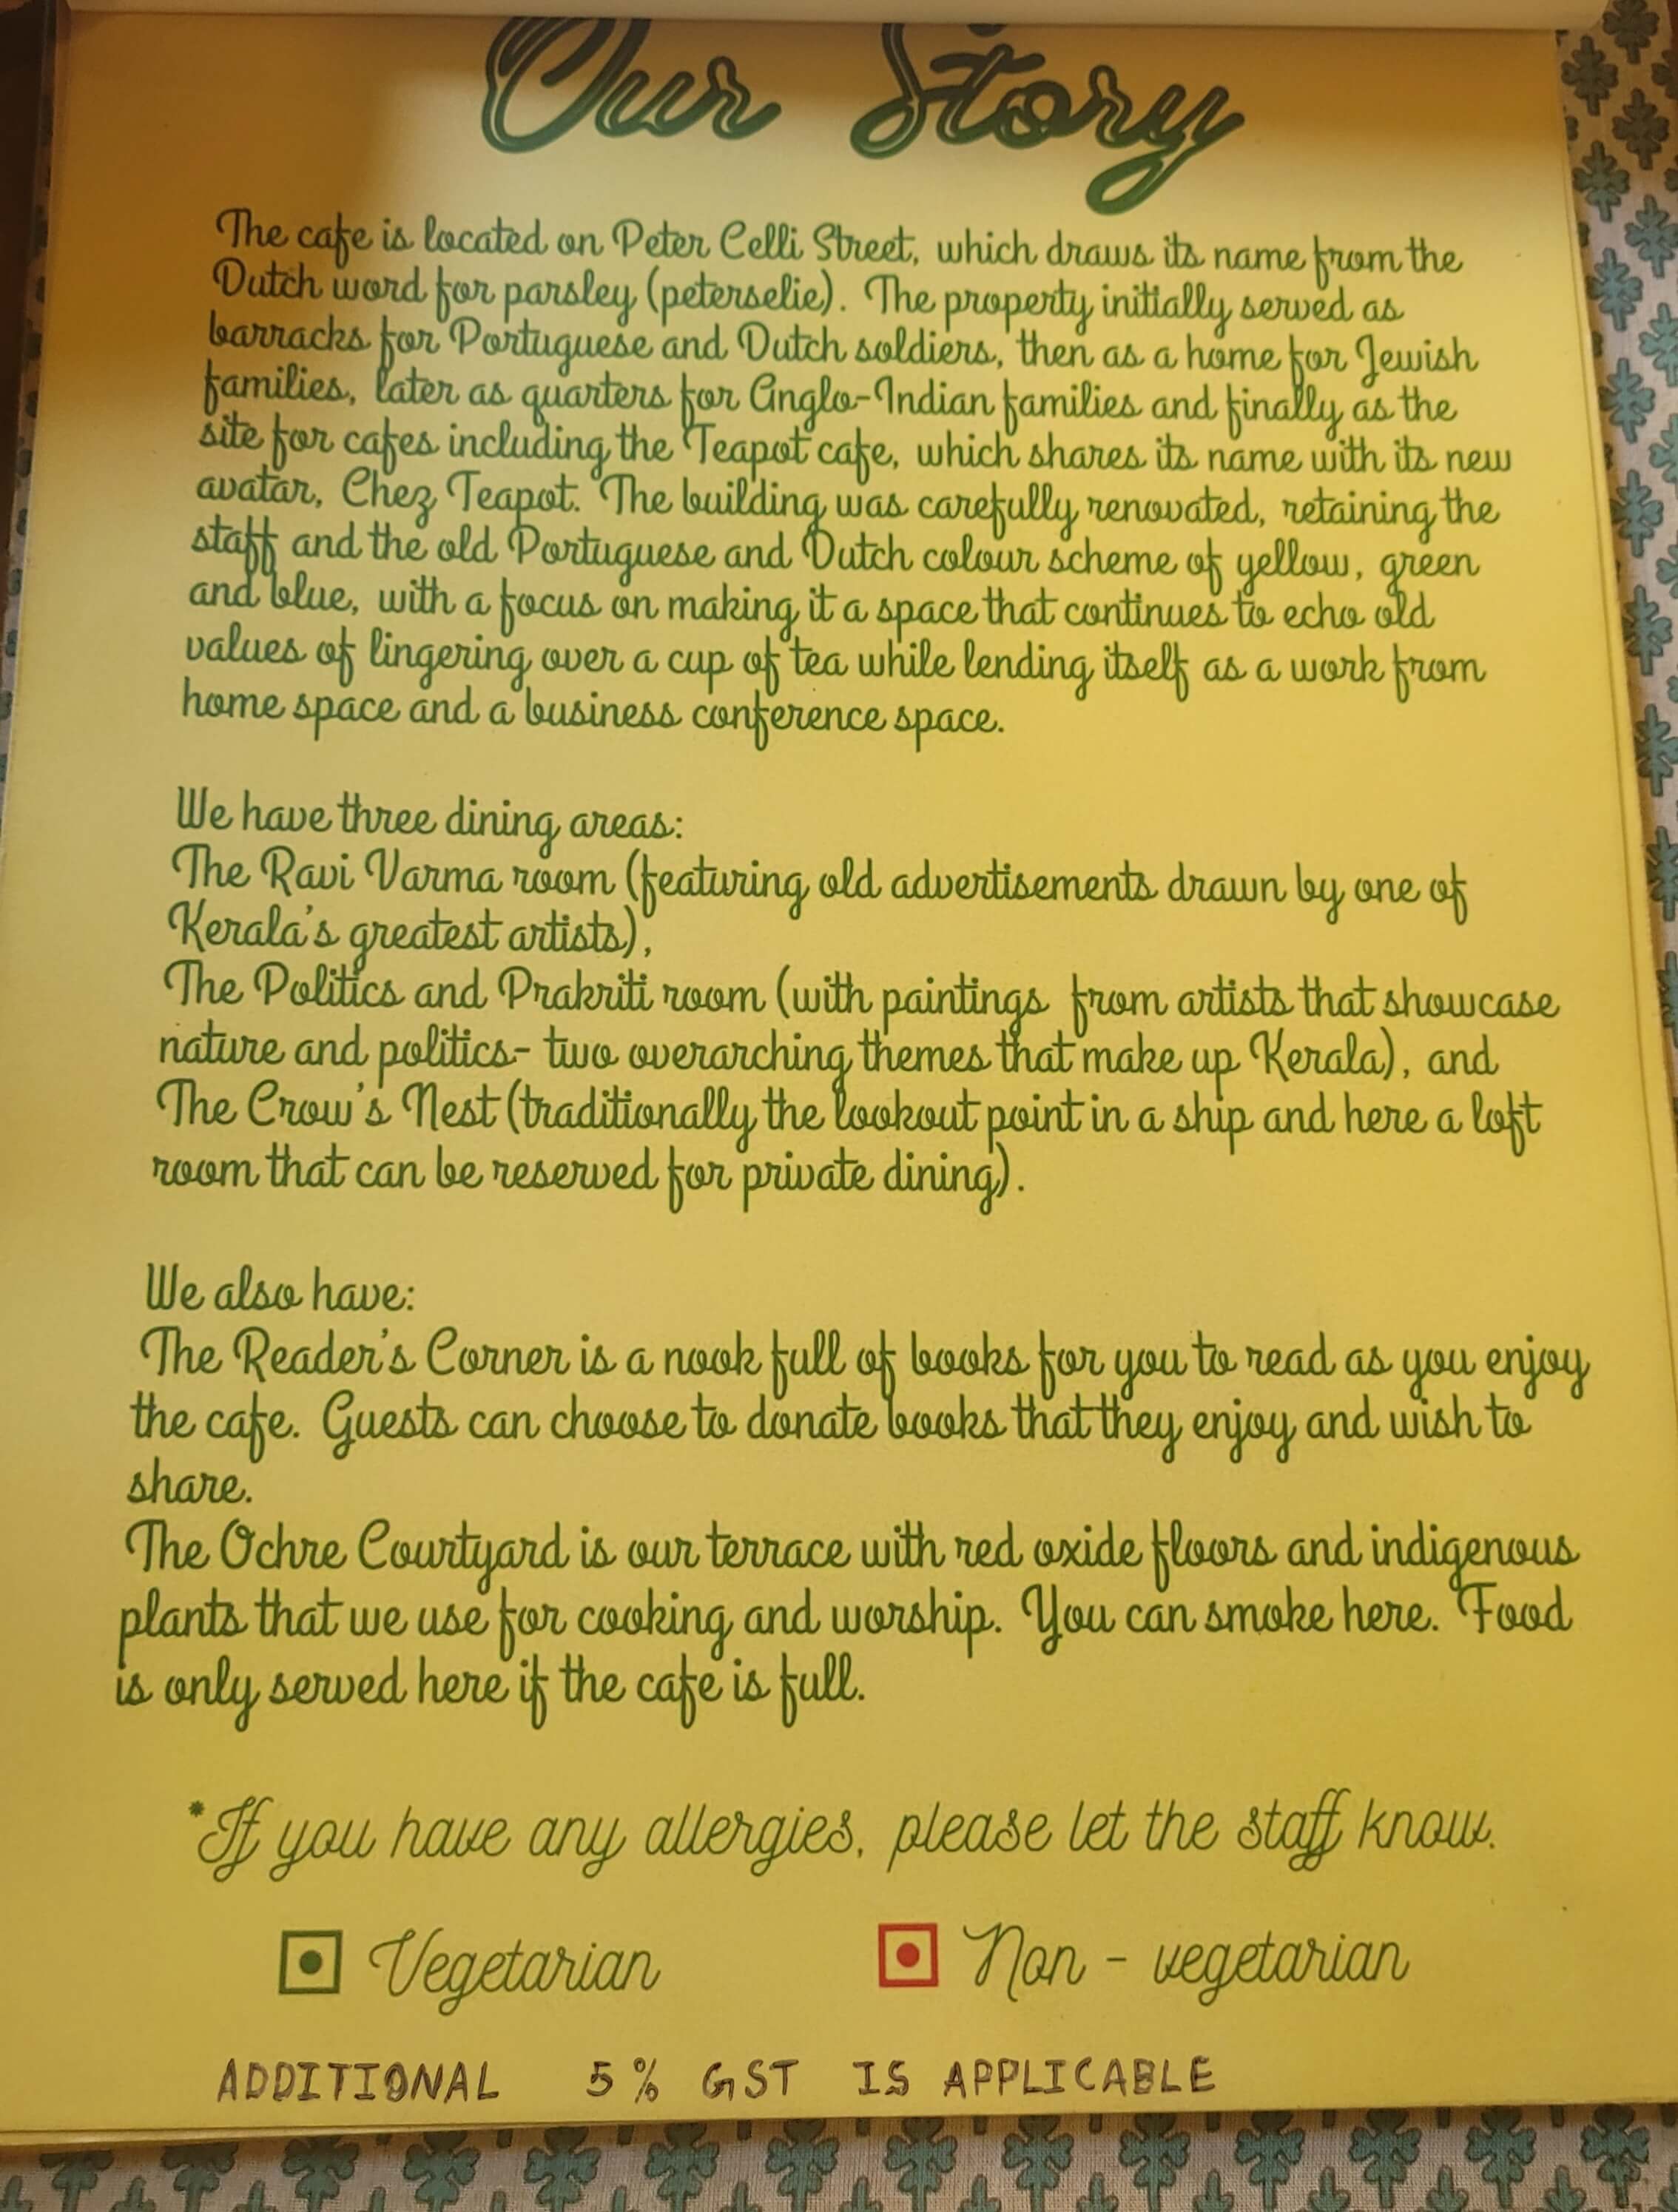 Our Story
The cafe is located on Peter Celli Street, which draws its name from the
Dutch word for parsley (peterselie). The property initially served as
barracks for Portuguese and Dutch soldiers, then as a home for Jewish
families, later as quarters for Anglo-Indian families and finally as the
site for cafes including the Teapot cafe, which shares its name with its new
avatar, Chez Teapot. The building was carefully renovated, retaining the
staff and the old Portuguese and Dutch colour scheme of yellow, green
and blue, with a focus on making it a space that continues to echo old
values of lingering over a cup of tea while lending itself as a work from
home space and a business conference space.
We have three dining areas:
The Ravi Varma room (featuring old advertisements drawn by one of
Kerala's greatest artists),
The Politics and Prakriti room (with paintings from artists that showcase
nature and politics- two overarching themes that make up Kerala), and
The Crow's Nest (traditionally the lookout point in a ship and here a loft
room that can be reserved for private dining).
We also have:
The Reader's Corner is a nook full of books for you to read as you enjoy
the cafe. Guests can choose to donate books that they enjoy and wish to
share.
The Ochre Courtyard is our terrace with red oxide floors and indigenous
plants that we use for cooking and worship. You can smoke here. Food
is only served here if the cafe is full.
*If you have any allergies, please let the staff know.
Vegetarian Non - vegetarian
ADDITIONAL 5% GST IS APPLICABLE